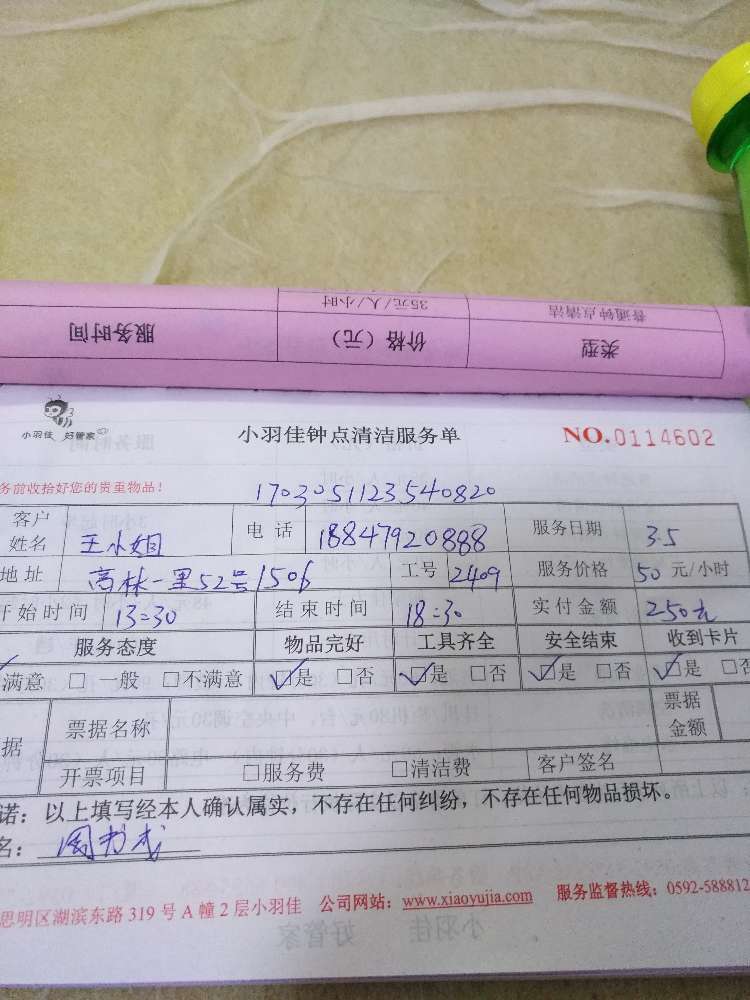 35元/人/小时 普通钟点清洁
服务时间 价格（元） 类型
小羽佳 好管家
小羽佳钟点清洁服务单 NO.0114602
务前收拾好您的贵重物品！ 1703051123540820
客户姓名 王小姐 电话 18847920888 服务日期 3.5
地址 高林一里52号1506 工号 2409 服务价格 50 元/小时
开始时间 13:30 结束时间 18:30 实付金额 250元
服务态度 物品完好 工具齐全 安全结束 收到卡片
满意 □ 一般 □不满意 ☑是 □否 ☑是 □否 ☑是 □否 ☑是 □否
据 票据名称 票据金额
开票项目 □服务费 □清洁费 客户签名
诺：以上填写经本人确认属实，不存在任何纠纷，不存在任何物品损坏。
名：
思明区湖滨东路 319 号 A 幢 2 层小羽佳 公司网站：www.xiaoyujia.com 服务监督热线：0592-588812